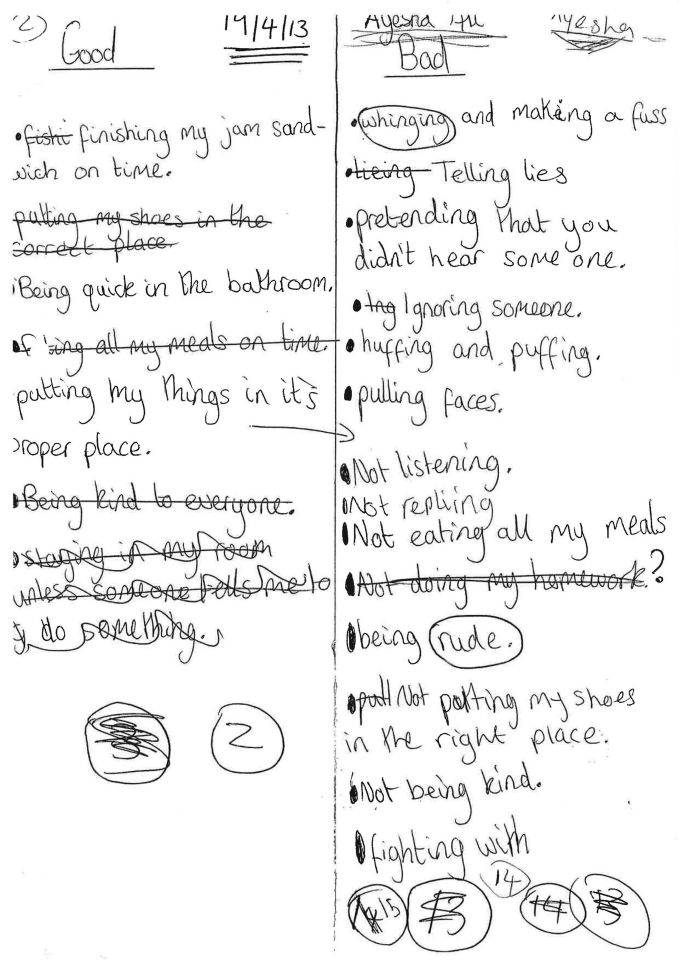 2)
Good
19/4/13
• fishi finishing my jam sand-
wich on time.
putting my shoes in the
correct place.
Being quick in the bathroom.
• all my meals on time.
putting my things in it's
proper place.
• Being kind to everyone.
• staying in my room
unless someone tells me to
do something.
2
Ayesha
Ayesha
Bad
• whinging and making a fuss
• lieing Telling lies
• pretending that you
didn't hear some one.
• Ing Ignoring someone.
• huffing and puffing.
• pulling faces.
• Not listening.
Not repliing
Not eating all my meals
• Not doing my homework.?
being rude.
• putt Not putting my shoes
in the right place.
• Not being kind.
fighting with
14
15
14